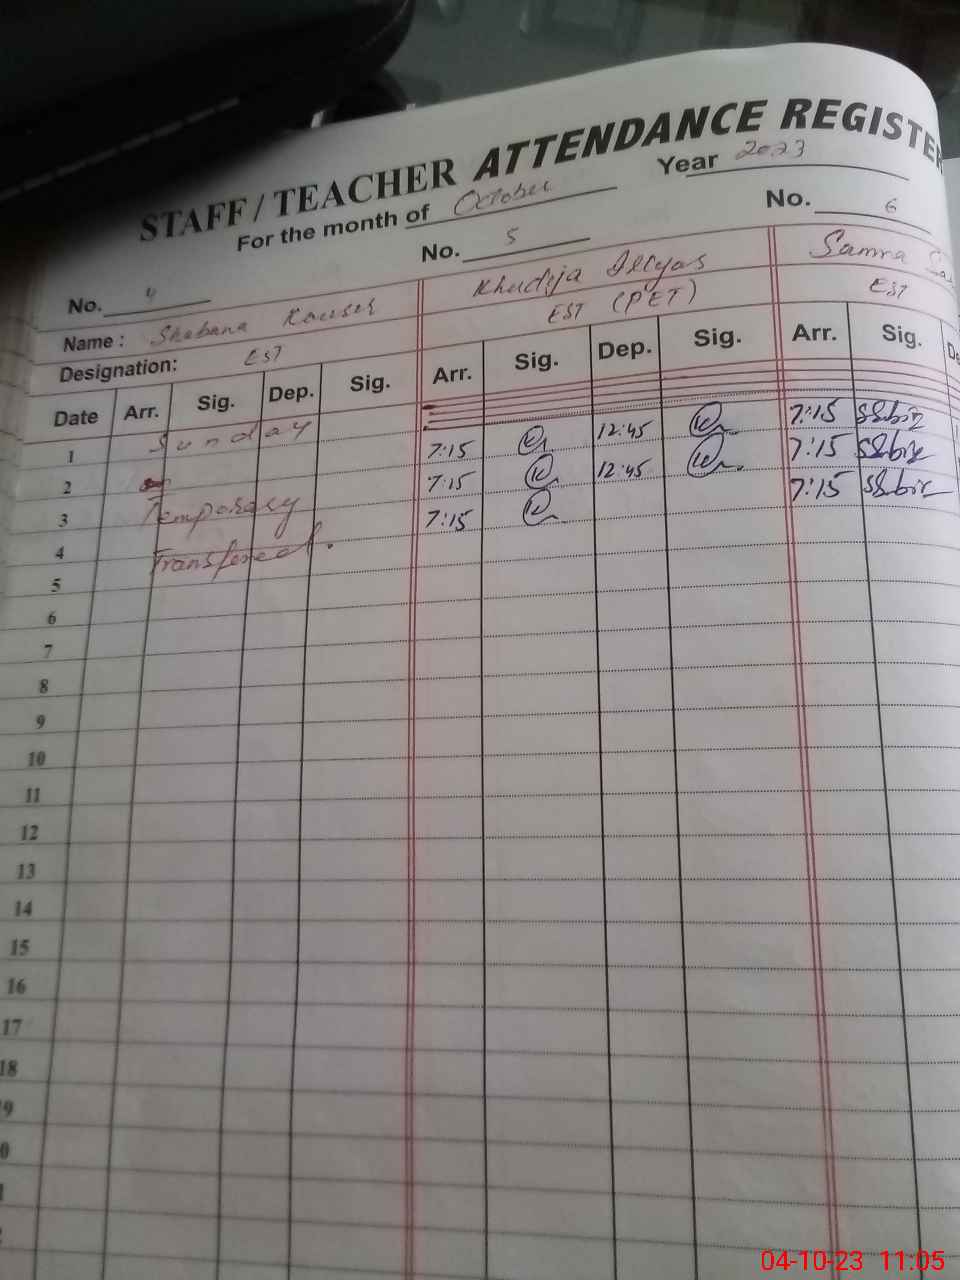 STAFF / TEACHER ATTENDANCE REGISTER
For the month of October Year 2023
No. 4 No. 5 No. 6
Name : Shabana Kausar Khudija Illyas Samra
Designation: EST EST (PET) EST
Date Arr. Sig. Dep. Sig. Arr. Sig. Dep. Sig. Arr. Sig.
1 Sunday
2 7:15 12:45 7:15
3 Temporary 7:15 12:45 7:15
4 Transfered. 7:15 7:15
5
6
7
8
9
10
11
12
13
14
15
16
17
18
04-10-23 11:05